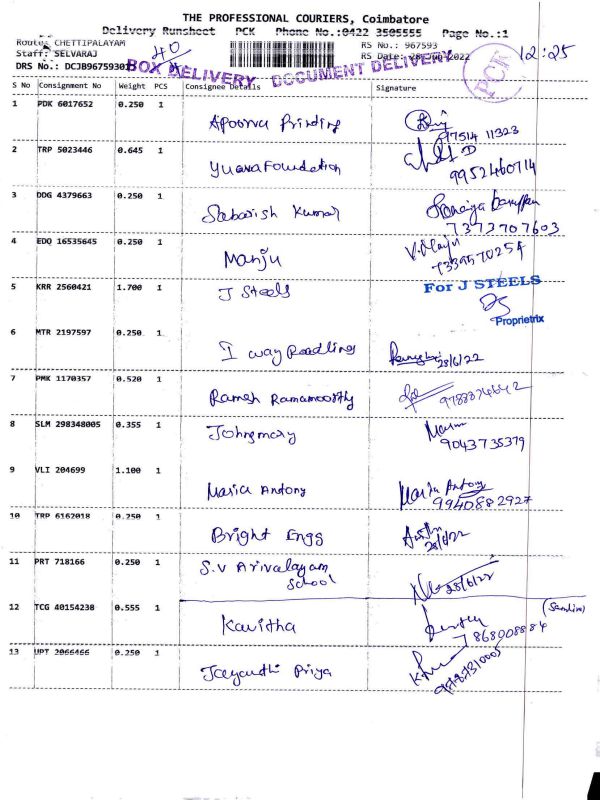 THE PROFESSIONAL COURIERS, Coimbatore
Delivery Runsheet PCK Phone No.:0422 3505555 Page No.:1
Route: CHETTIPALAYAM
RS No.: 967593
12:25
Staff: SELVARAJ
40
DRS No.:
BOX DELIVERY DOCUMENT DELIVERY
PCK
S No Consignment No Weight PCS Consignee Details Signature
1 PDK 6017652 0.250 1
Apoorva Printing
97514 11323
2 TRP 5023446 0.645 1
Yuava Foundation
9952460714
3 DDG 4379663 0.250 1
Sabarish Kumar
7373707603
4 EDQ 16535645 0.250 1
Manju
7339570254
5 KRR 2560421 1.700 1
J Steels
For J STEELS
Proprietrix
6 MTR 2197597 0.250 1
I way Roadlines
28/6/22
7 PMK 1170357 0.520 1
Ramesh Ramamoorthy
8 SLM 298348005 0.355 1
Johnsmary
9043735379
9 VLI 204699 1.100 1
Maria Antony
Maria Antony
9940882927
10 TRP 6162018 0.250 1
Bright Engg
28/6/22
11 PRT 718166 0.250 1
S.V Arivalayam
School
28/6/22
12 TCG 40154238 0.555 1
Kavitha
7868008884
13 UPT 2066466 0.250 1
Jayanthi Priya
9787310005